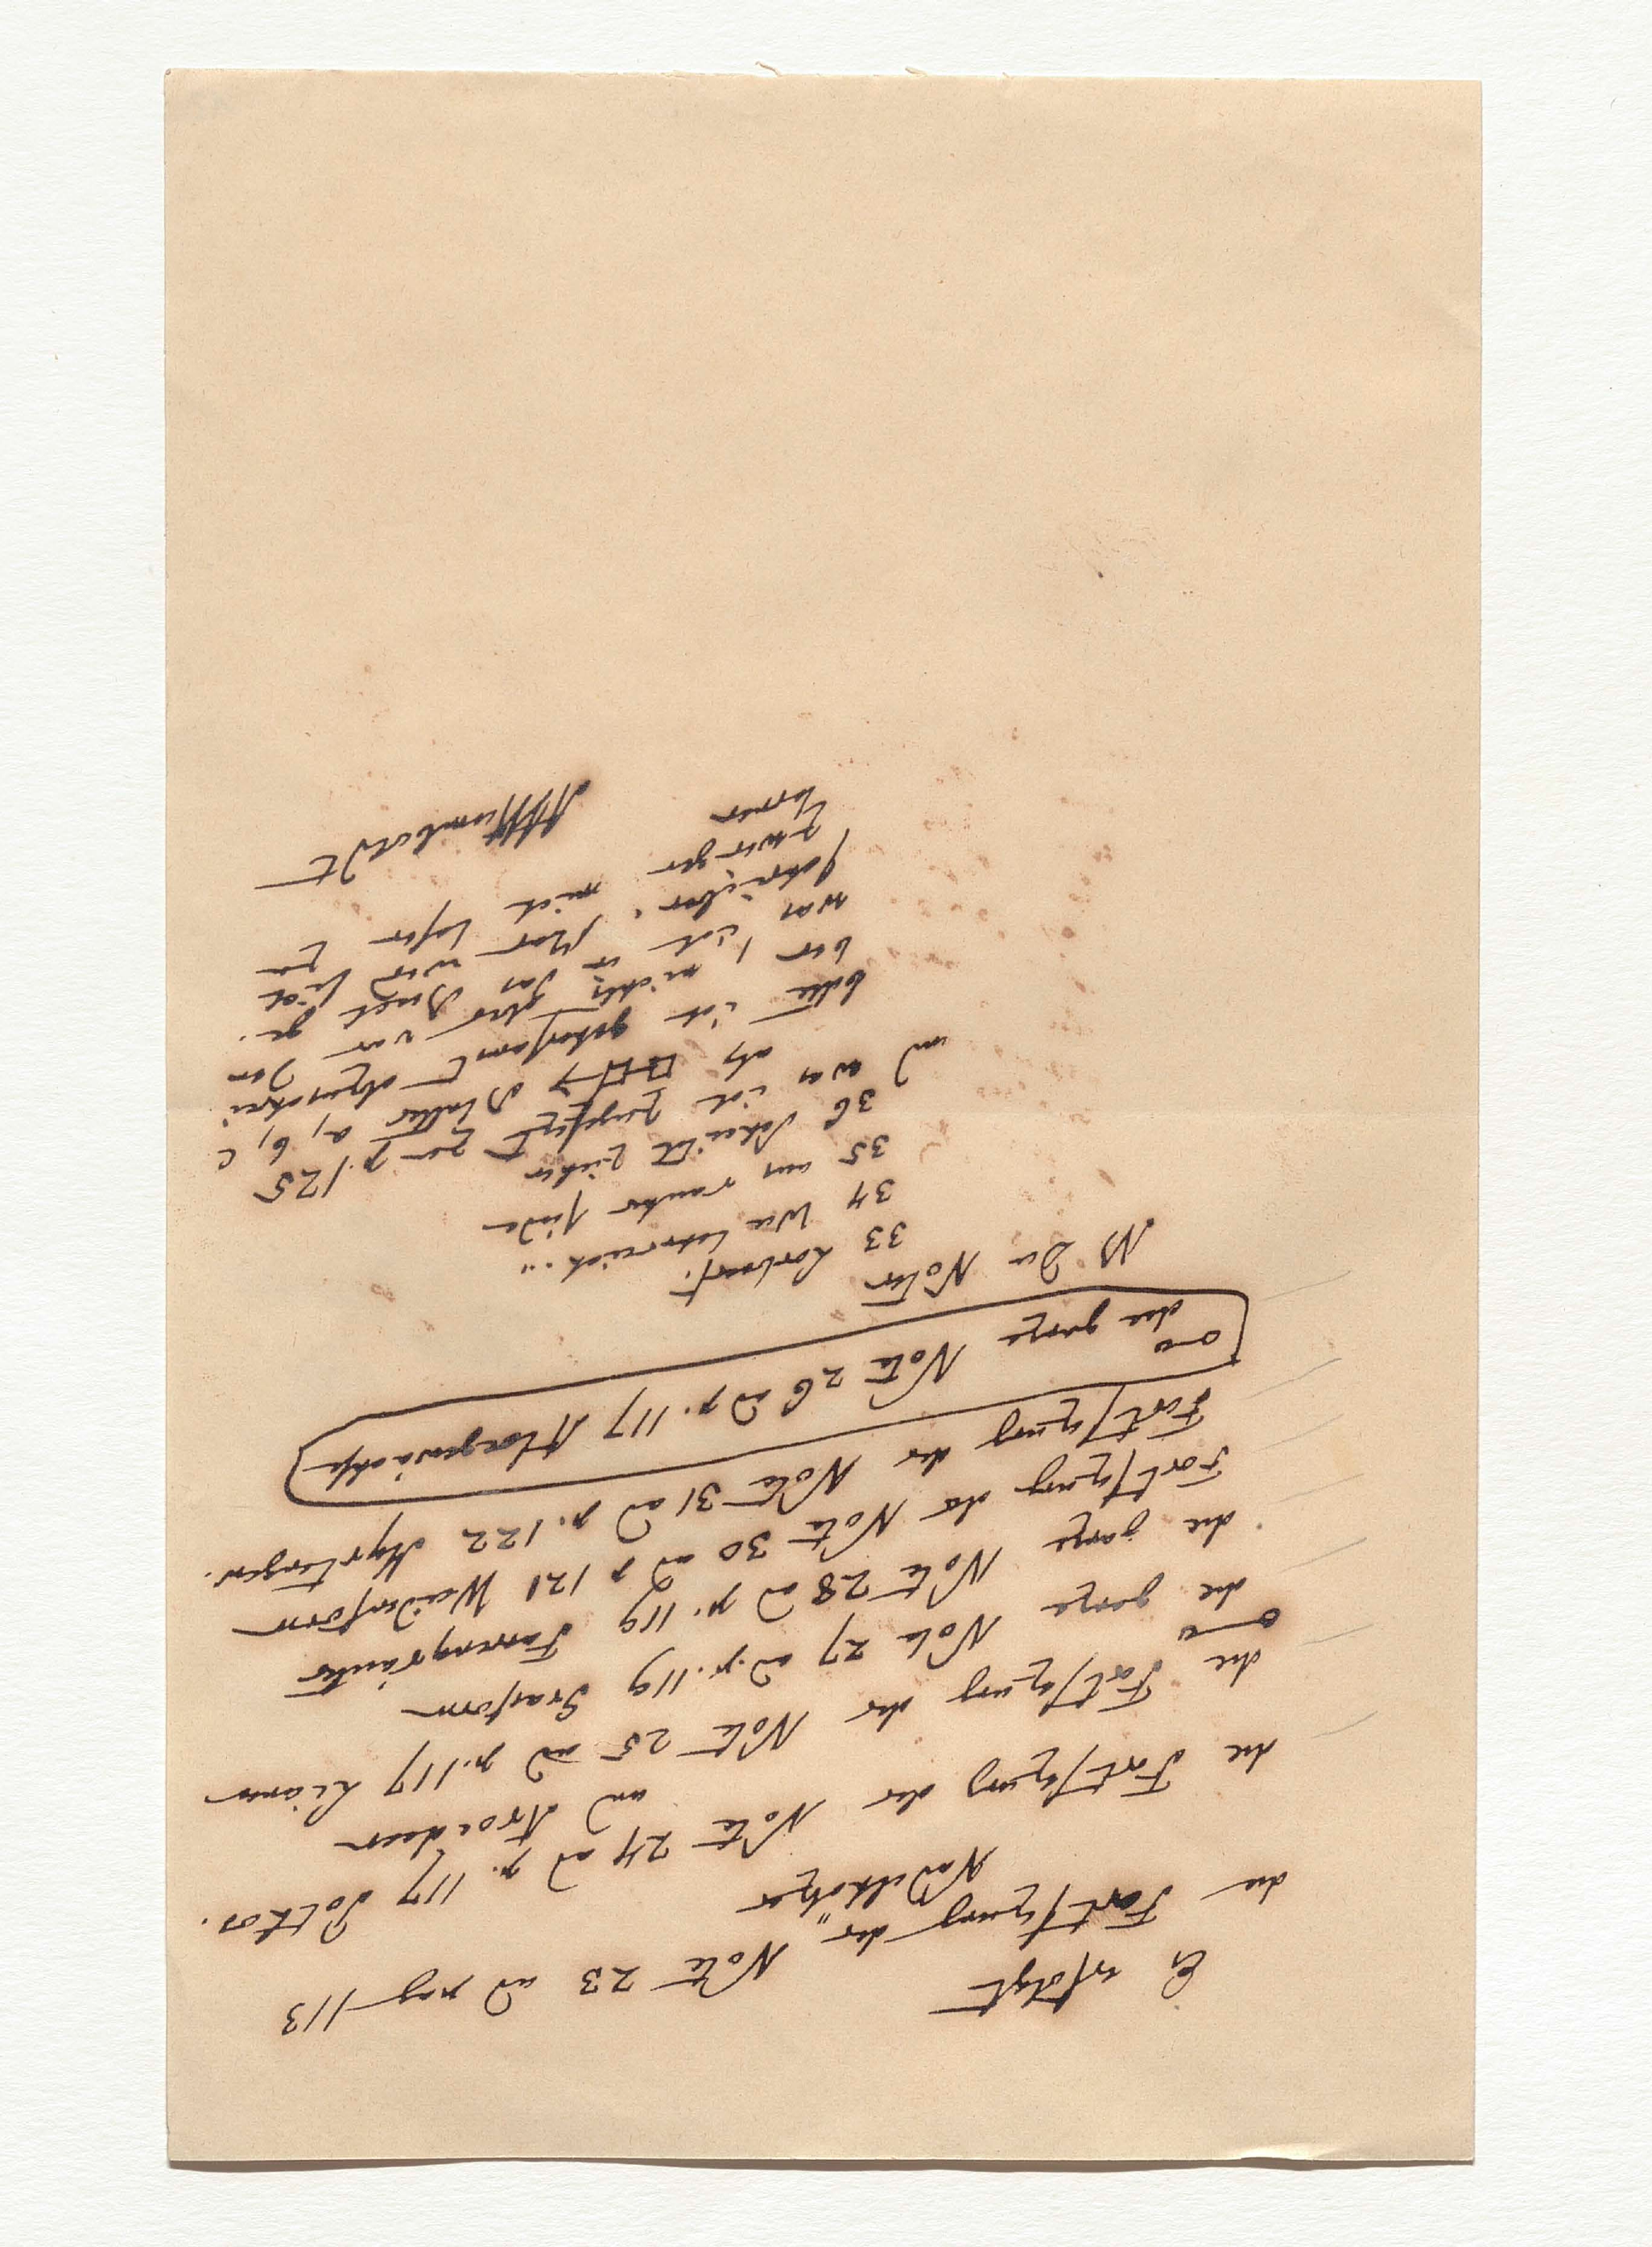 Es erfolgt
die Fortsezung der Note 23 ad pag 113
"Nadelhölzer
die Fortsezung der Note 24 ad p. 117 Pothos.
und Aroideen
die Fortsezung der Note 25 ad p. 117 Lianen
die ganze Note 27 ad p. 119 Grasform
die ganze Note 28 ad p. 119 Farrenkräuter
Fortsezung der Note 30 ad p 121 Weidenform
Fortsezung der Note 31 ad p. 122 Myrtengew.
die ganze Note 26 ad p. 117 Aloegewächse
NB Die Noten 33 Lorbeerf.
34 Wie lehrreich..."
35 am rauhen
36 Schmückt
und was ich zugesezt zu p. 125
als Blätter a, b, c
bitte ich gehorsamst abzuschrei
ben, ich nicht
was ich
schreiben. mich zu
zwingen
können
AvHumboldt